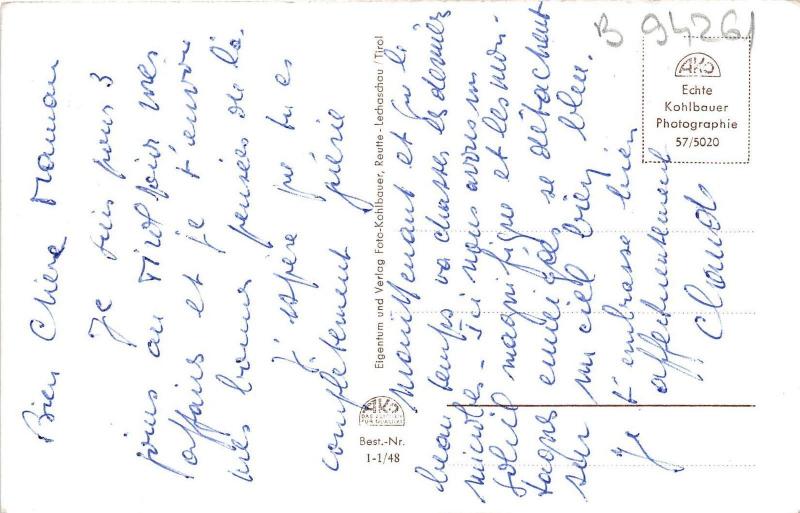 Bien Chère Maman
Je suis pour 3
jours au Tirol pour mes
affaires et je t'envoie
mes bonnes pensées de là.
J'espère que tu es
complètement guérie
maintenant et que le
beau temps va chasser les derniers
microbes - Ici nous avons un
soleil magnifique et les mon-
tagnes enneigées se détachent
sur un ciel bien bleu.
Je t'embrasse bien
affectueusement
Claude
Eigentum und Verlag Foto-Kohlbauer, Reutte-Lechaschau/Tirol
AKO
Best.-Nr.
1-1/48
B 94261
AKO
Echte
Kohlbauer
Photographie
57/5020